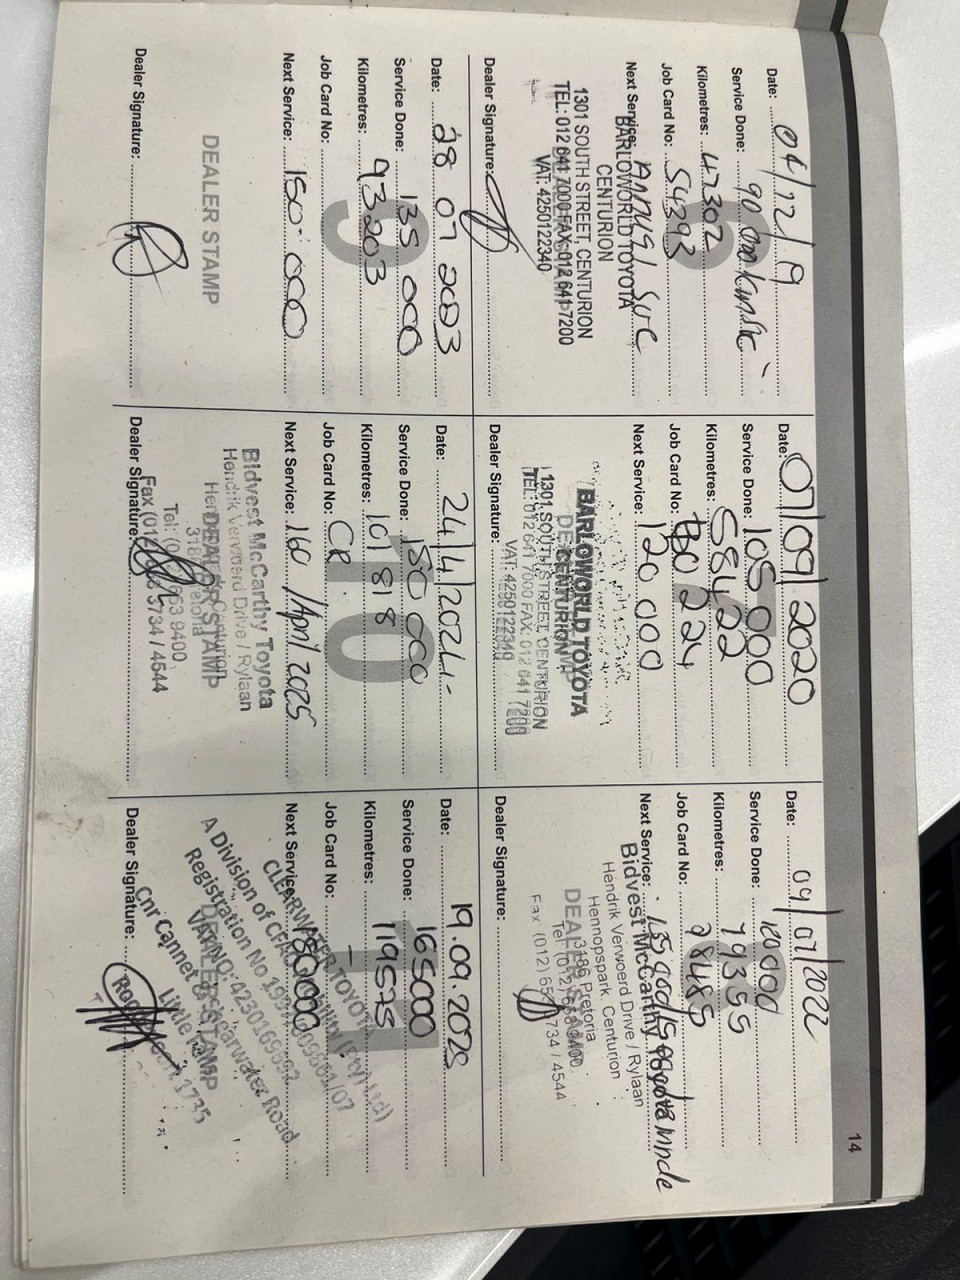 14
Date: 04/12/19
Service Done: 90 000km svc
Kilometres: 47302
Job Card No: 54393
Next Service: Annual SVC
BARLOWORLD TOYOTA
CENTURION
1301 SOUTH STREET, CENTURION
TEL: 012 641 7000 FAX: 012 641 7200
VAT: 4250122340
Dealer Signature:
Date: 07/09/2020
Service Done: 105 000
Kilometres: 58422
Job Card No: 80224
Next Service: 120 000
BARLOWORLD TOYOTA
CENTURION
1301 SOUTH STREET, CENTURION
TEL: 012 641 7000 FAX: 012 641 7200
VAT: 4250122340
Dealer Signature:
Date: 04/07/2022
Service Done: 120000
Kilometres: 79355
Job Card No: 98485
Next Service:
Bidvest McCarthy Toyota
Hendrik Verwoerd Drive / Rylaan
Hennopspark, Centurion
3186 Pretoria
DEALER STAMP
Dealer Signature:
Date: 28 07 2023
9
Service Done: 135 000
Kilometres: 93203
Job Card No:
Next Service: 150 000
DEALER STAMP
Dealer Signature:
Date: 24/4/2024
10
Service Done: 150 000
Kilometres: 101818
Job Card No: CR
Next Service: 160 /April 2025
Bidvest McCarthy Toyota
Hendrik Verwoerd Drive / Rylaan
DEALER STAMP
Dealer Signature:
Date: 19.09.2025
Service Done: 165000
Kilometres: 119575
Job Card No:
Next Service: 180000
CLEARWATER TOYOTA
A Division of CFAO
Registration No
DEALER STAMP
Cnr Cannet Clearwater Road
Little Falls 1735
Dealer Signature: